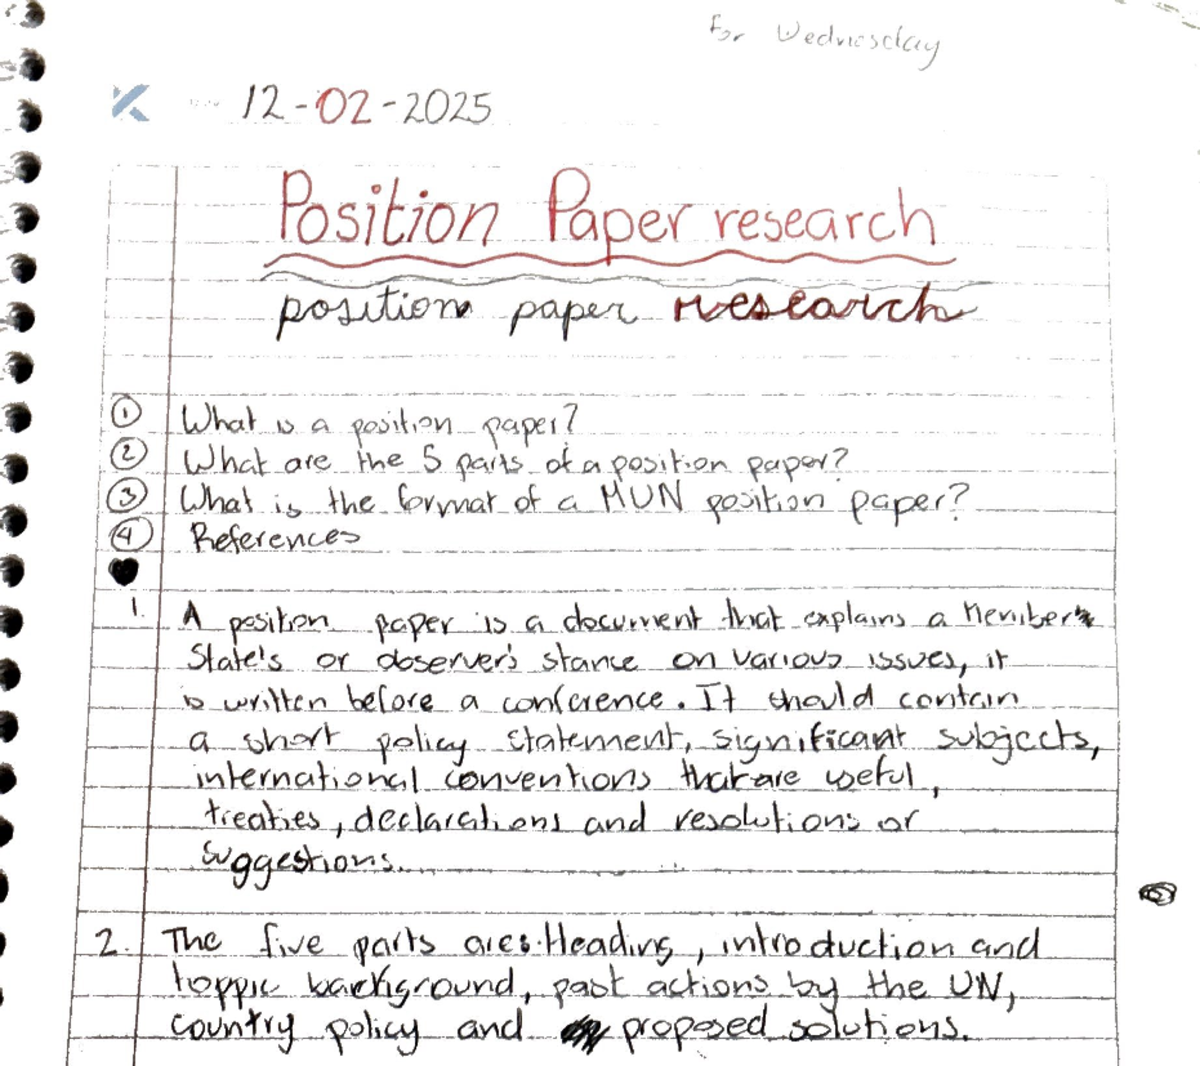 For Wednesday
12-02-2025
Position Paper research
position paper research
① What is a position paper?
② What are the 5 parts of a position paper?
③ What is the format of a MUN position paper?
④ References
1. A position paper is a document that explains a Member
State's or observer's stance on various issues, it
is written before a conference. It should contain
a short policy statement, significant subjects,
international conventions that are useful,
treaties, declarations and resolutions or
suggestions.
2. The five parts are: Heading, introduction and
toppic background, past actions by the UN,
country policy and proposed solutions.